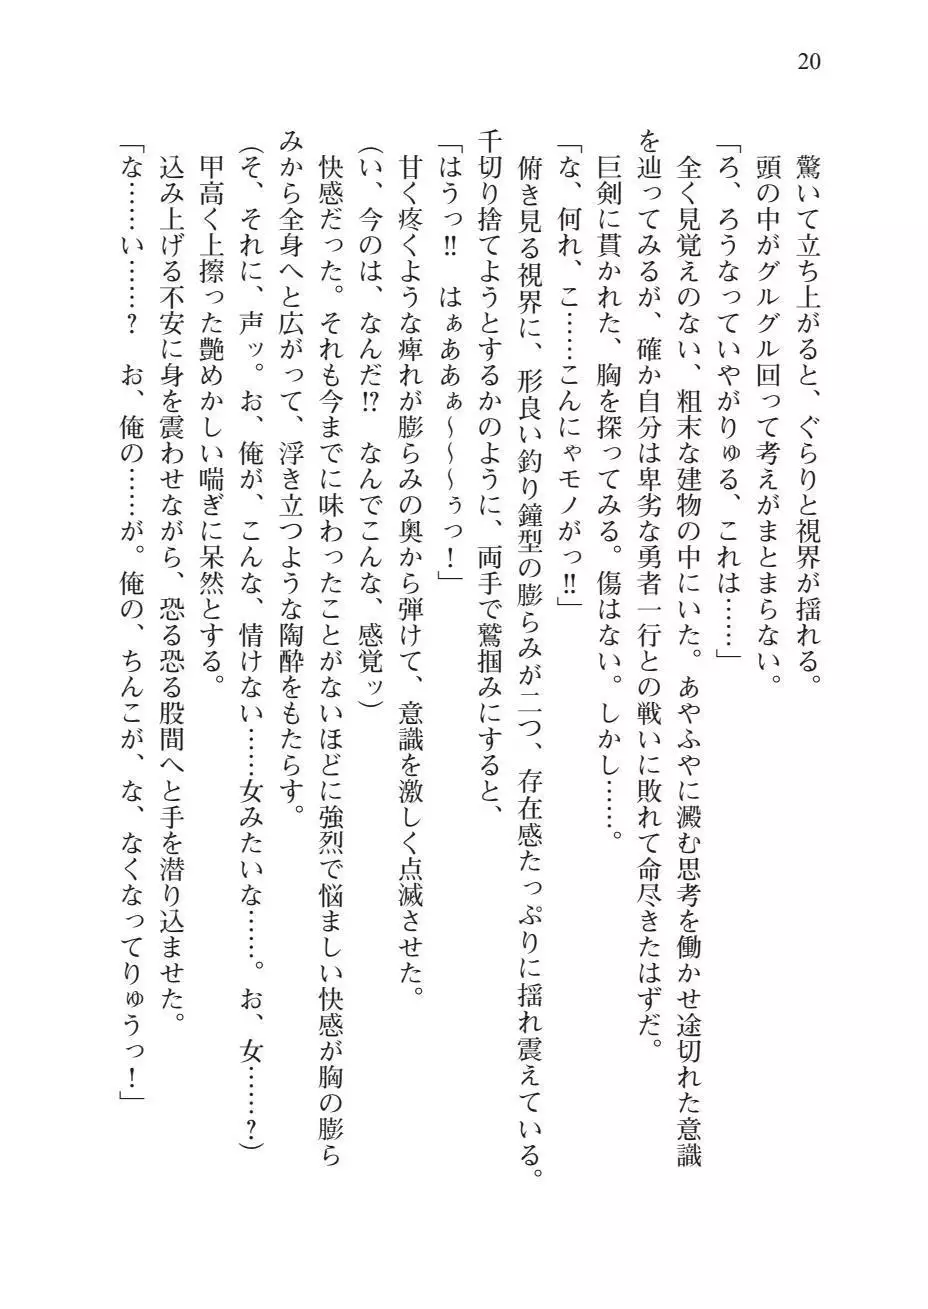 20
驚いて立ち上がると、ぐらりと視界が揺れる。
頭の中がグルグル回って考えがまとまらない。
「ろ、ろうなっていやがりゅる、これは……」
全く見覚えのない、粗末な建物の中にいた。あやふやに澱む思考を働かせ途切れた意識
を辿ってみるが、確か自分は卑劣な勇者一行との戦いに敗れて命尽きたはずだ。
巨剣に貫かれた、胸を探ってみる。傷はない。しかし……。
「な、何れ、こ……こんにゃモノがっ‼」
俯き見る視界に、形良い釣り鐘型の膨らみが二つ、存在感たっぷりに揺れ震えている。
千切り捨てようとするかのように、両手で鷲掴みにすると、
「はうっ‼　はぁああぁ～～～ぅっ！」
甘く疼くような痺れが膨らみの奥から弾けて、意識を激しく点滅させた。
(い、今のは、なんだ⁉　なんでこんな、感覚ッ)
快感だった。それも今までに味わったことがないほどに強烈で悩ましい快感が胸の膨ら
みから全身へと広がって、浮き立つような陶酔をもたらす。
(そ、それに、声ッ。お、俺が、こんな、情けない……女みたいな……。お、女……？)
甲高く上擦った艶めかしい喘ぎに呆然とする。
込み上げる不安に身を震わせながら、恐る恐る股間へと手を潜り込ませた。
「な……い……？　お、俺の……が。俺の、ちんこが、な、なくなってりゅうっ！」